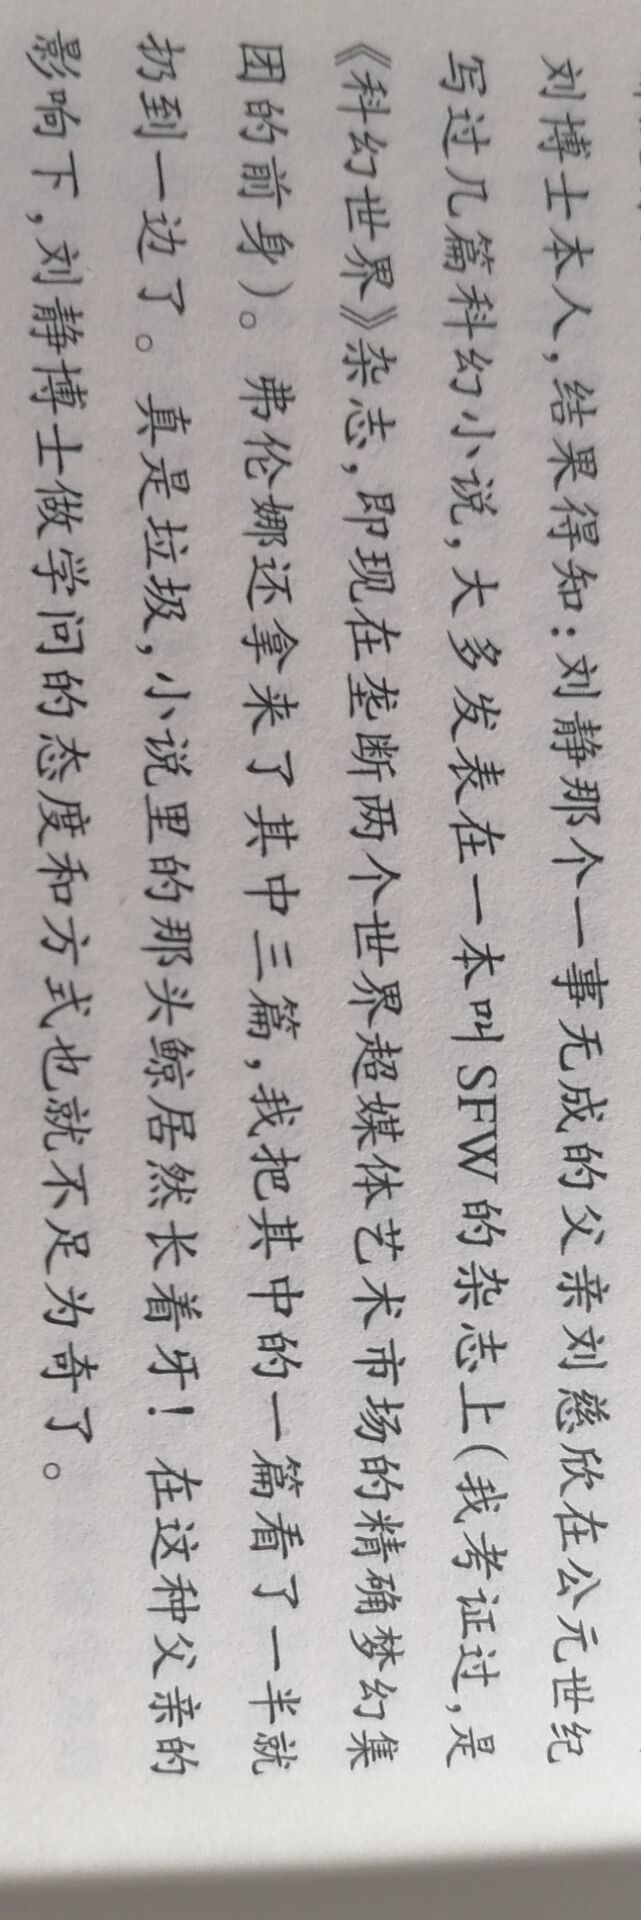 刘博士本人，结果得知：刘静那个一事无成的父亲刘慈欣在公元世纪
写过几篇科幻小说，大多发表在一本叫SFW的杂志上（我考证过，是
《科幻世界》杂志，即现在垄断两个世界超媒体艺术市场的精确梦幻集
团的前身）。弗伦娜还拿来了其中三篇，我把其中的一篇看了一半就
扔到一边了。真是垃圾，小说里的那头鲸居然长着牙！在这种父亲的
影响下，刘静博士做学问的态度和方式也就不足为奇了。